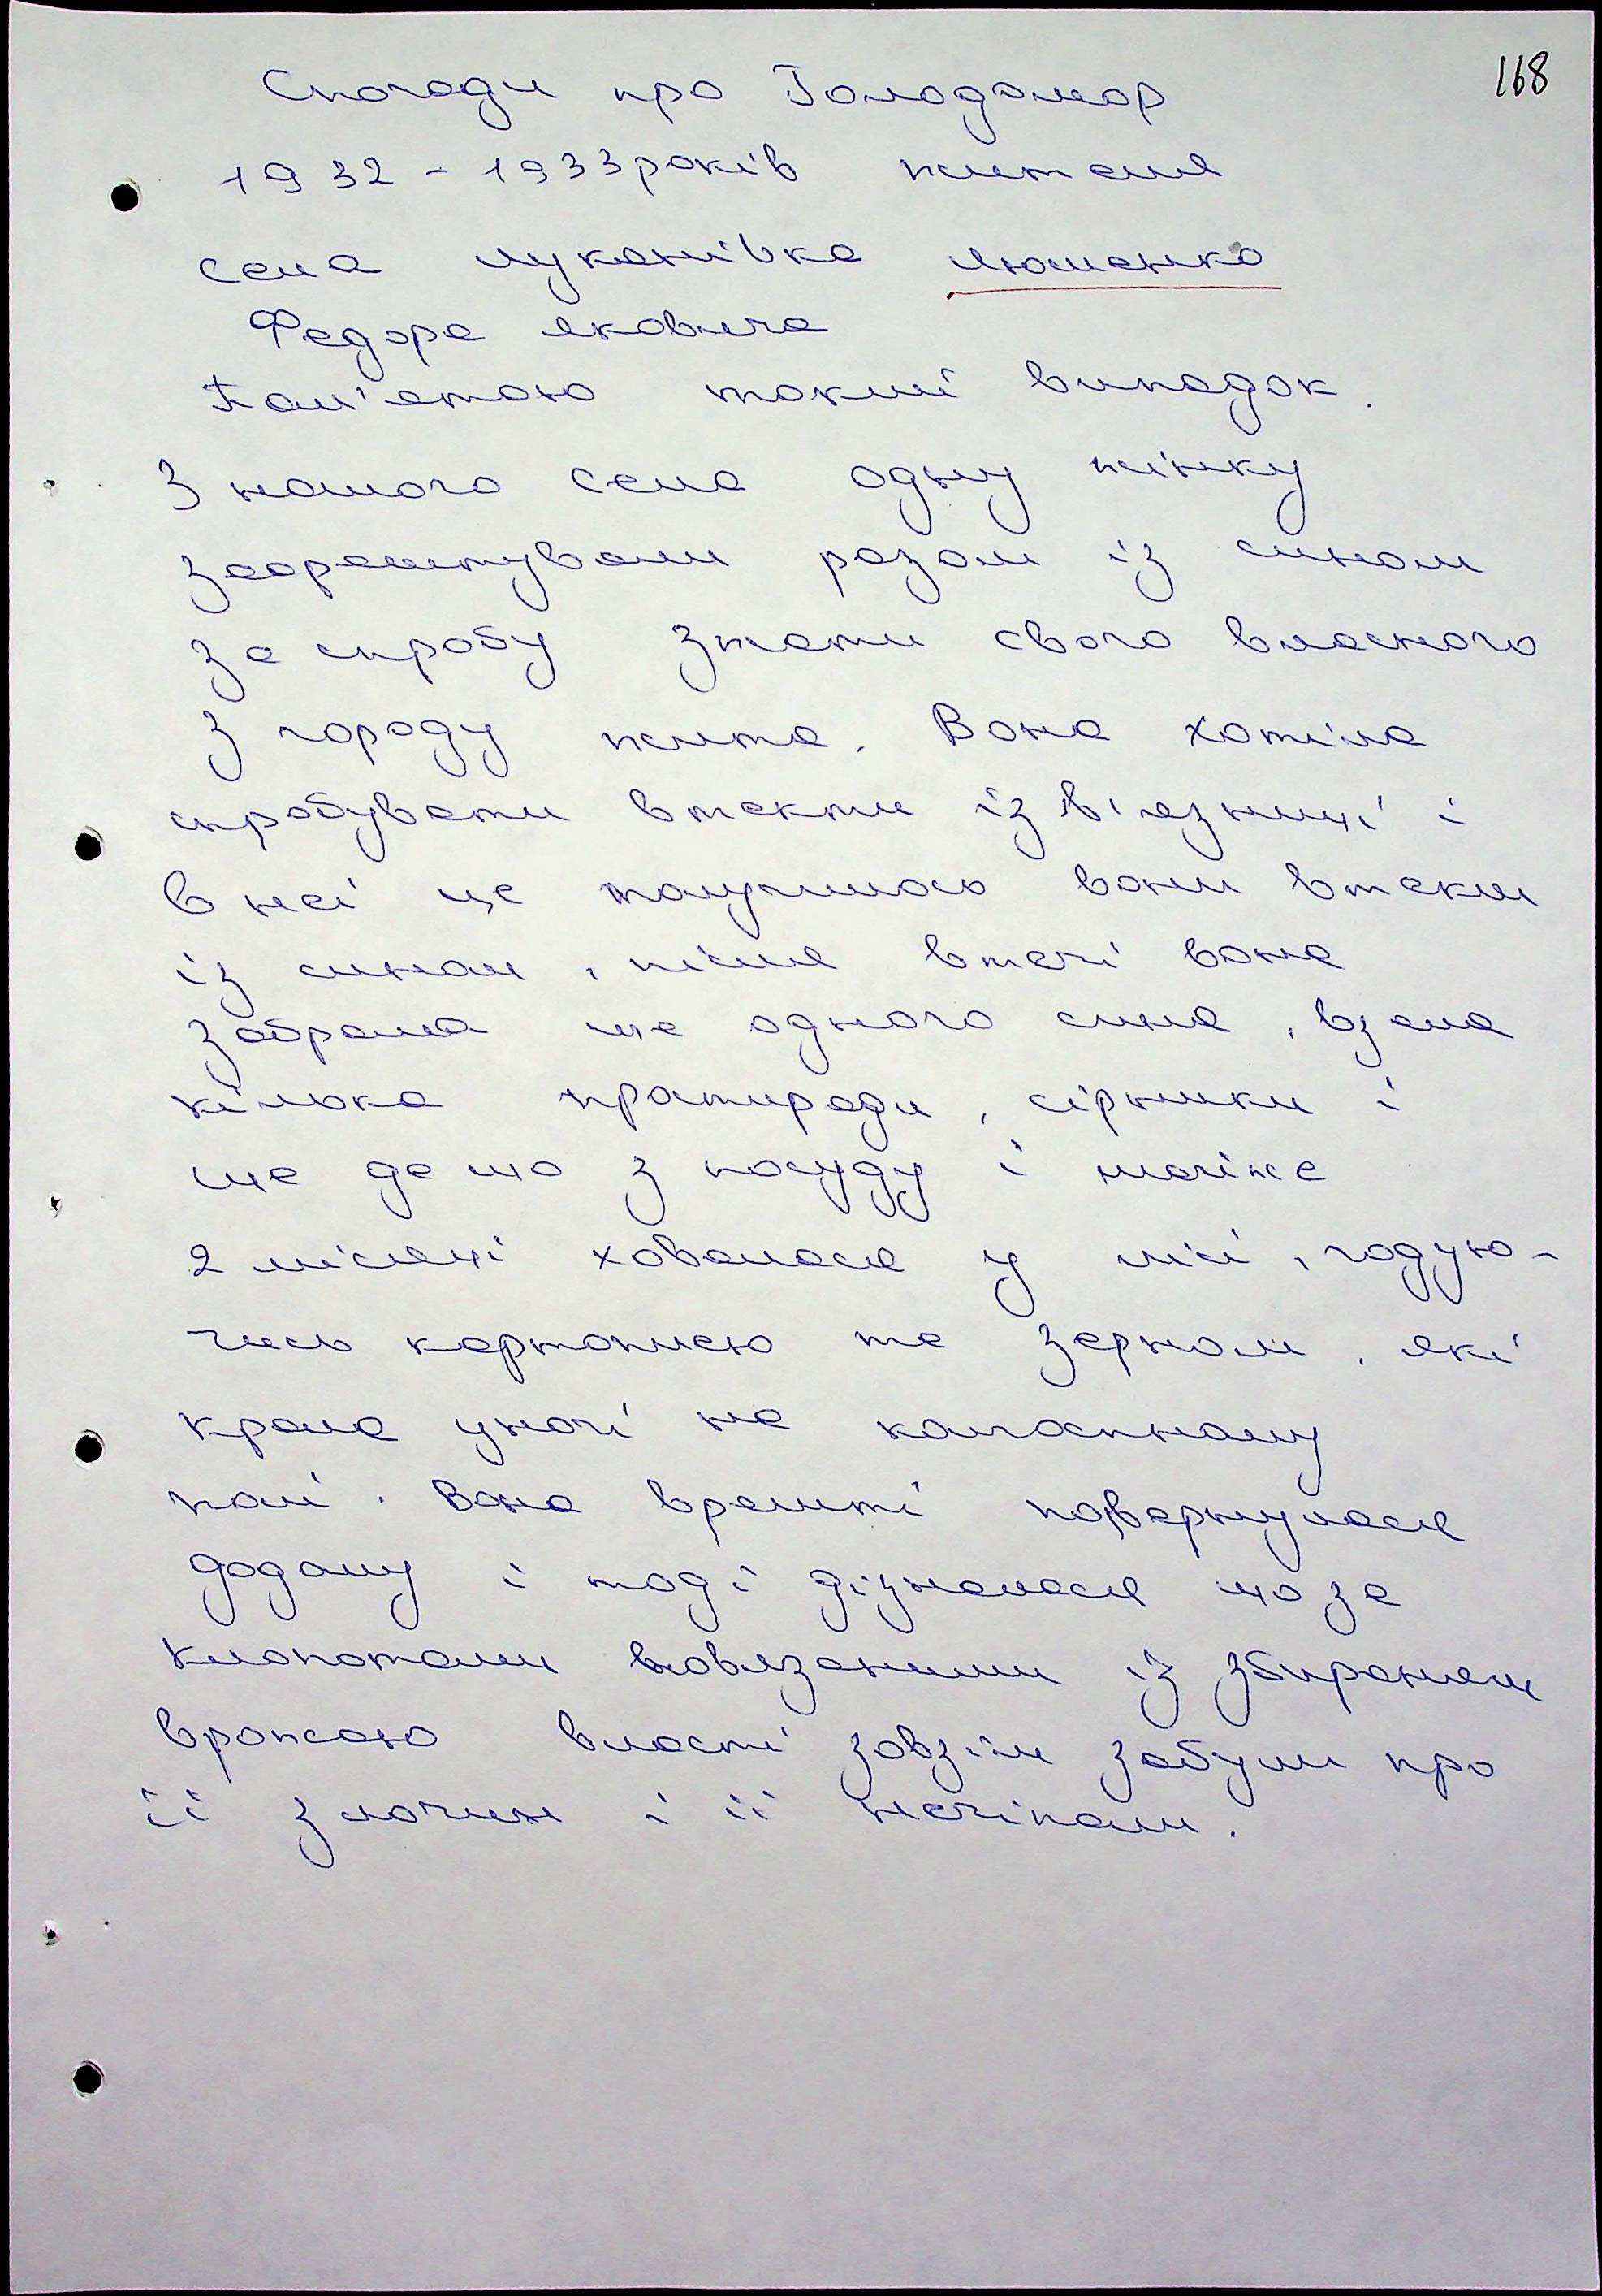 168
Спогади про Голодомор
1932 - 1933 років жителя
села Луканівка Люшенко
Федора Яковича
Пам'ятаю такий випадок.
З нашого села одну жінку
заарештували разом із сином
за спробу зжати свого власного
з городу жита. Вона хотіла
спробувати втекти із в'язниці і
в неї це получилось вони втекли
із сином, після втечі вона
забрала ще одного сина, взяла
кілька простирадл, сірники і
ще де що з посуду і майже
2 місяці ховалася у лісі, годую-
чись картоплею та зерном, які
крала уночі на колгоспному
полі. Вона врешті повернулася
додому і тоді дізналася що за
клопотами повязаними із збиранням
врожаю власті зовзім забули про
її злочин і її нечіпали.